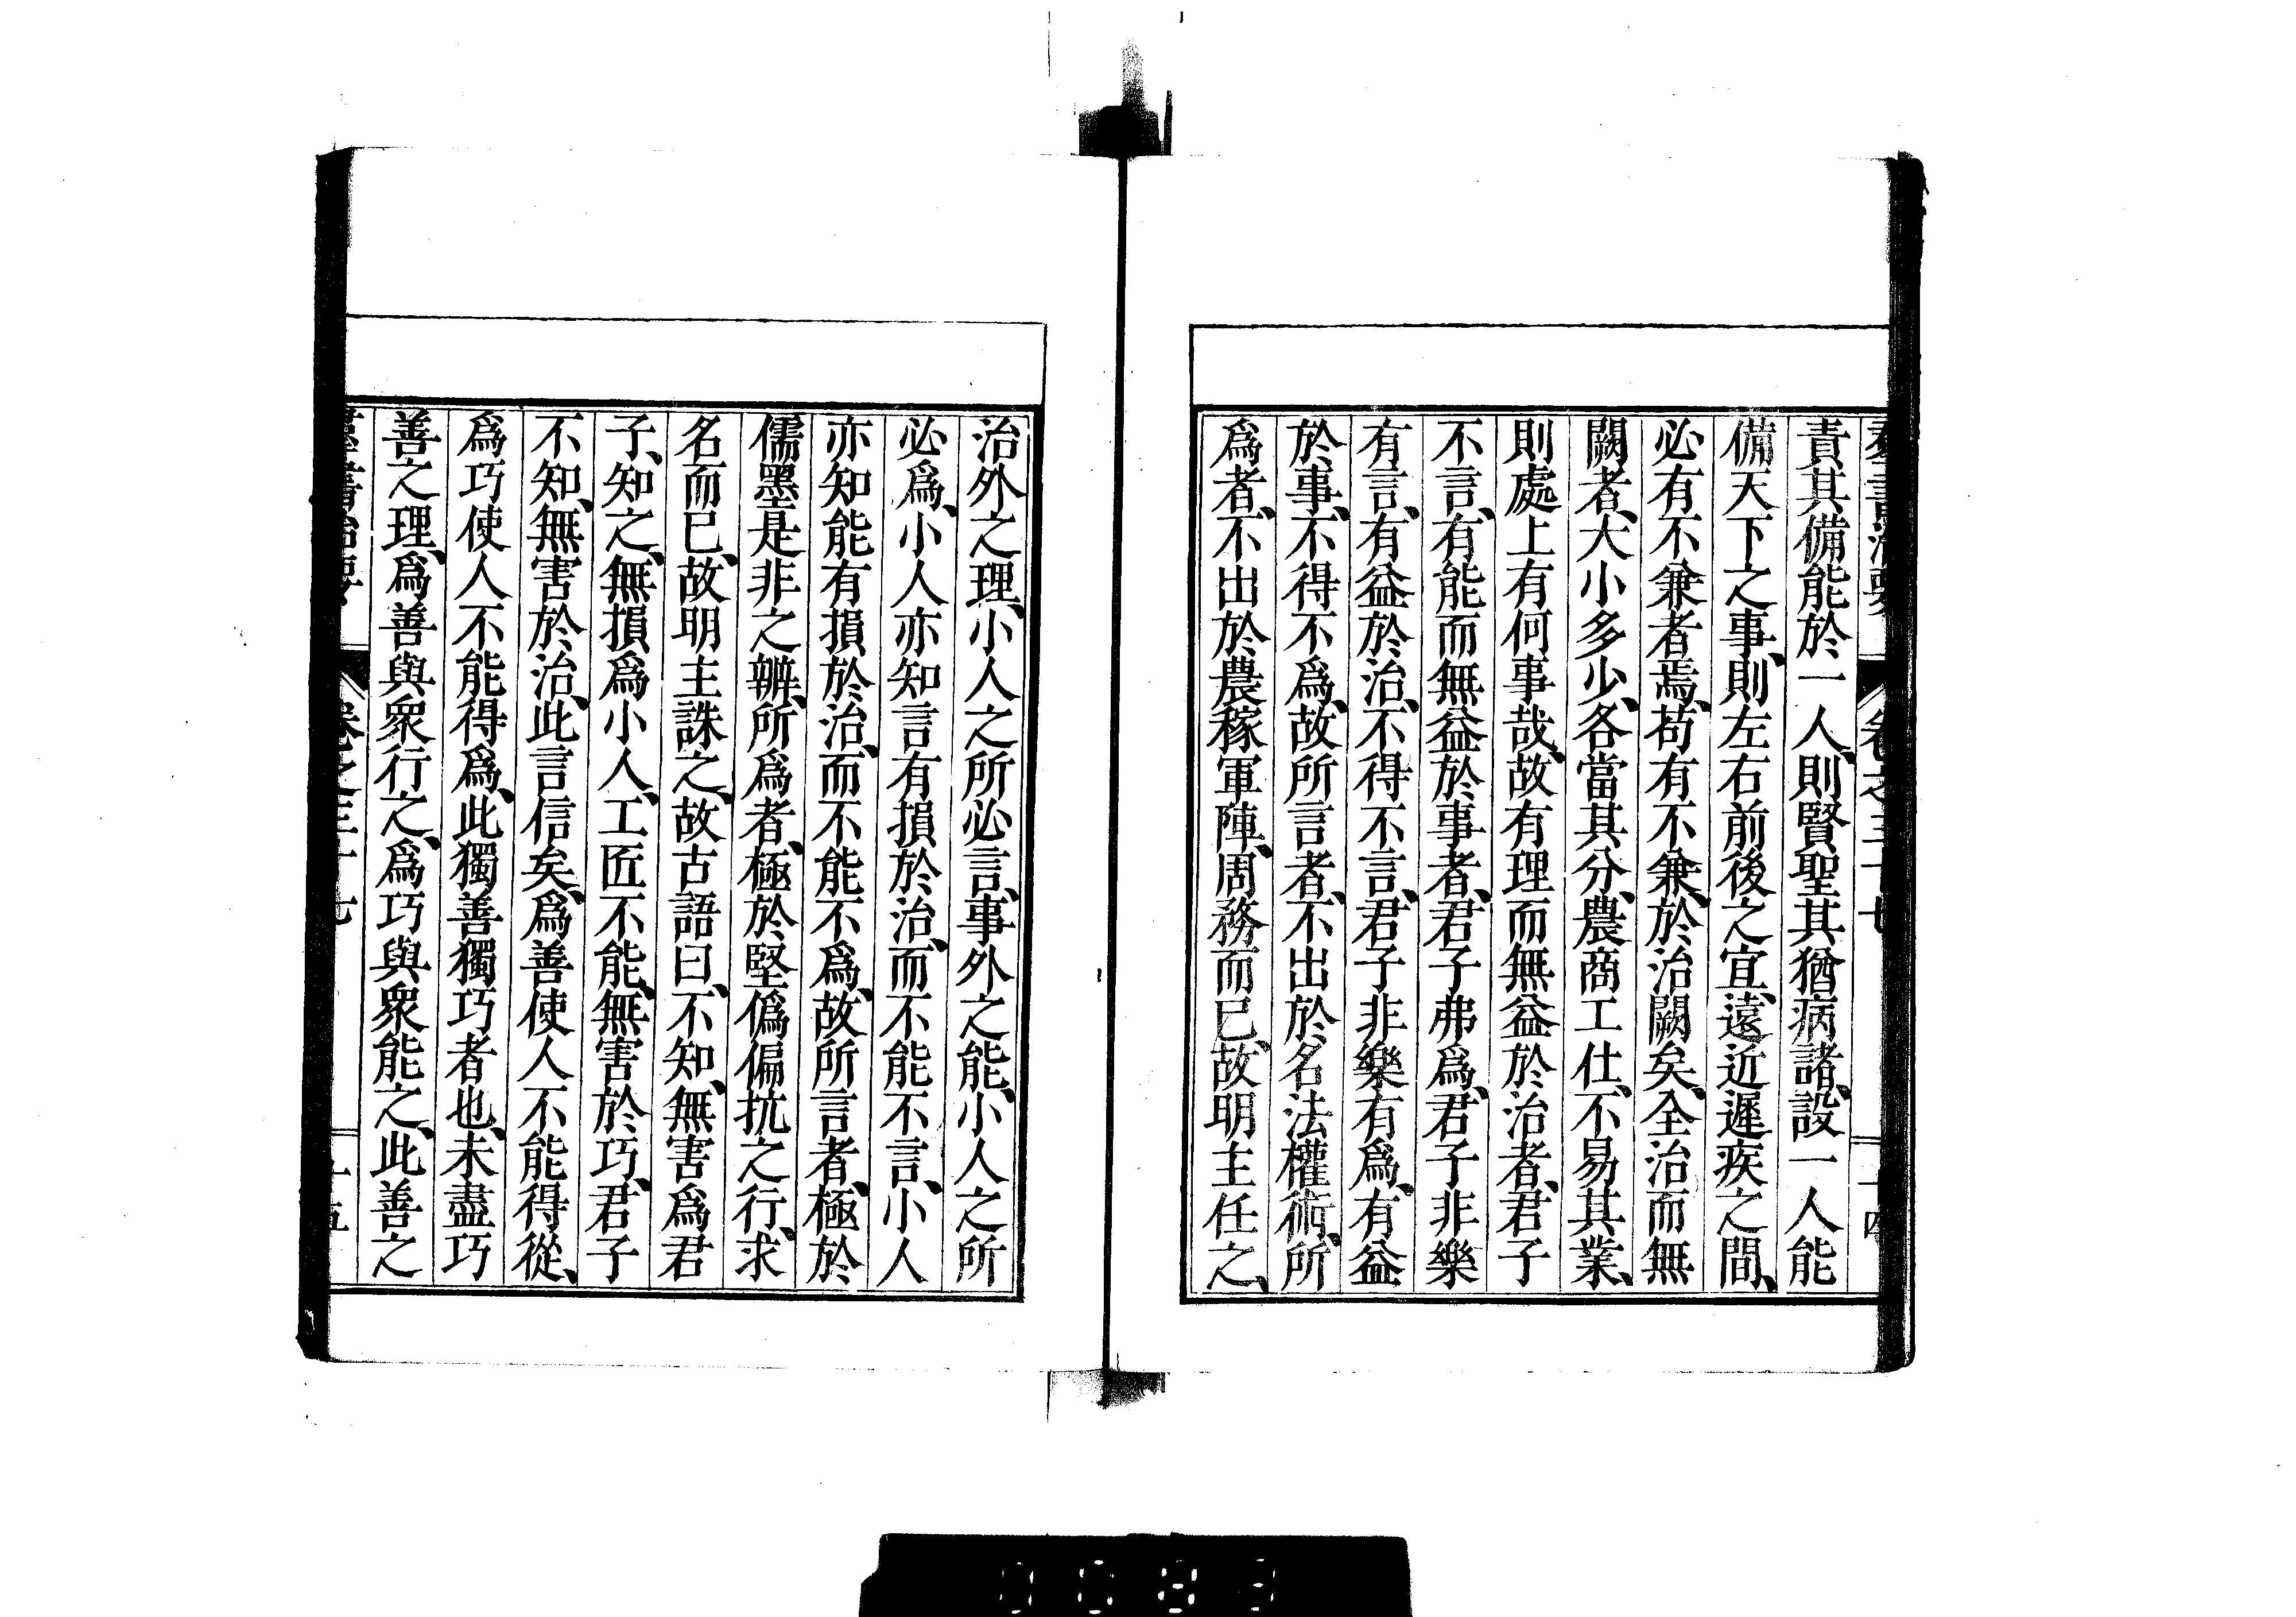 羣書治要 卷之三十七 十四
責其備能於一人、則賢聖其猶病諸、設一人能
備天下之事、則左右前後之宜、遠近遲疾之間、
必有不兼者焉、苟有不兼、於治闕矣、全治而無
闕者、大小多少、各當其分、農商工仕、不易其業、
則處上有何事哉、故有理而無益於治者、君子
不言、有能而無益於事者、君子弗爲、君子非樂
有言、有益於治、不得不言、君子非樂有爲、有益
於事、不得不爲、故所言者、不出於名法權術、所
爲者、不出於農稼軍陣、周務而已、故明主任之、
治外之理、小人之所必言、事外之能、小人之所
必爲、小人亦知言有損於治、而不能不言、小人
亦知能有損於治、而不能不爲、故所言者、極於
儒墨是非之辨、所爲者、極於堅僞偏抗之行、求
名而已、故明主誅之、故古語曰、不知、無害爲君
子、知之、無損爲小人、工匠不能、無害於巧、君子
不知、無害於治、此言信矣、爲善使人不能得從、
爲巧使人不能得爲、此獨善獨巧者也、未盡巧
善之理、爲善與衆行之、爲巧與衆能之、此善之
羣書治要 卷之三十七 十五